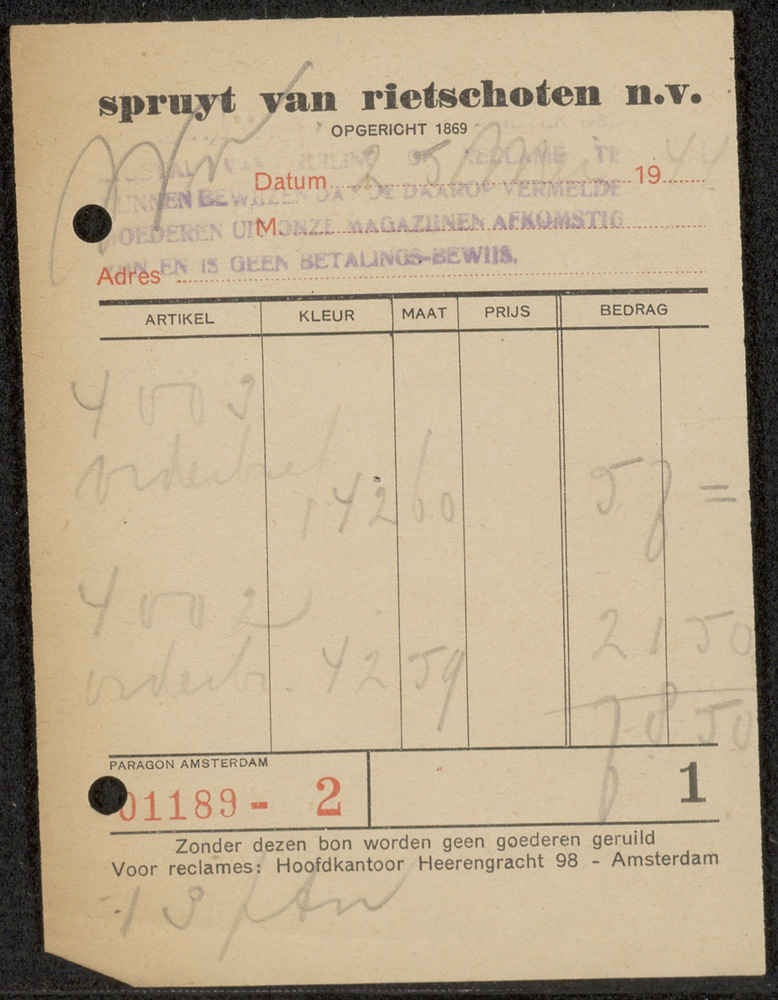 spruyt van rietschoten n.v.
OPGERICHT 1869
VAN RUILING OF RECLAME TE
Datum 25 19 44
KUNNEN BEWIJZEN DAT DE DAAROP VERMELDE
M.
GOEDEREN UIT ONZE MAGAZIJNEN AFKOMSTIG
ZIJN EN IS GEEN BETALINGS-BEWIJS.
Adres
ARTIKEL KLEUR MAAT PRIJS BEDRAG
4003
orderbrief
14260 57 =
4002
orderbr. 4259 21 50
78 50
PARAGON AMSTERDAM
01189 - 2 1
Zonder dezen bon worden geen goederen geruild
Voor reclames: Hoofdkantoor Heerengracht 98 - Amsterdam